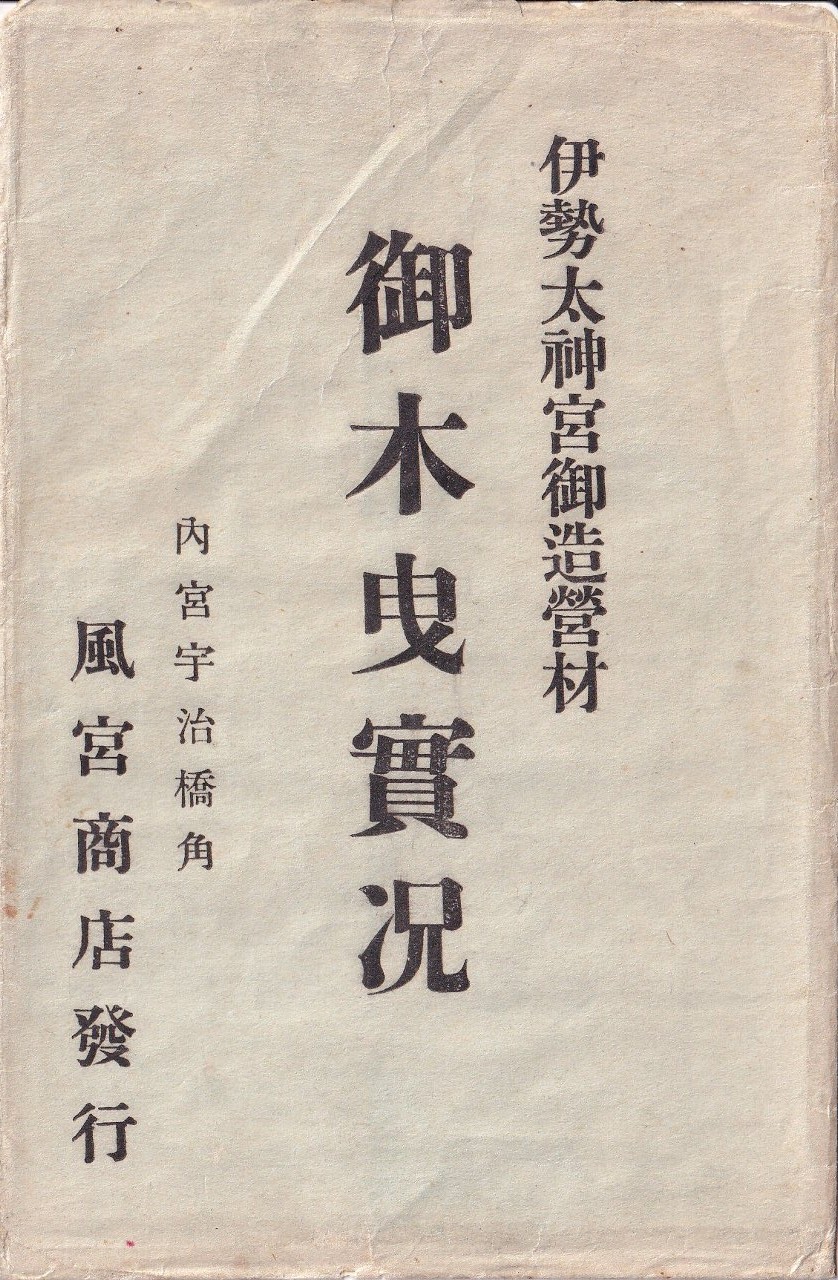 伊勢太神宮御造營材
御木曳實況
內宮宇治橋角
風宮商店發行